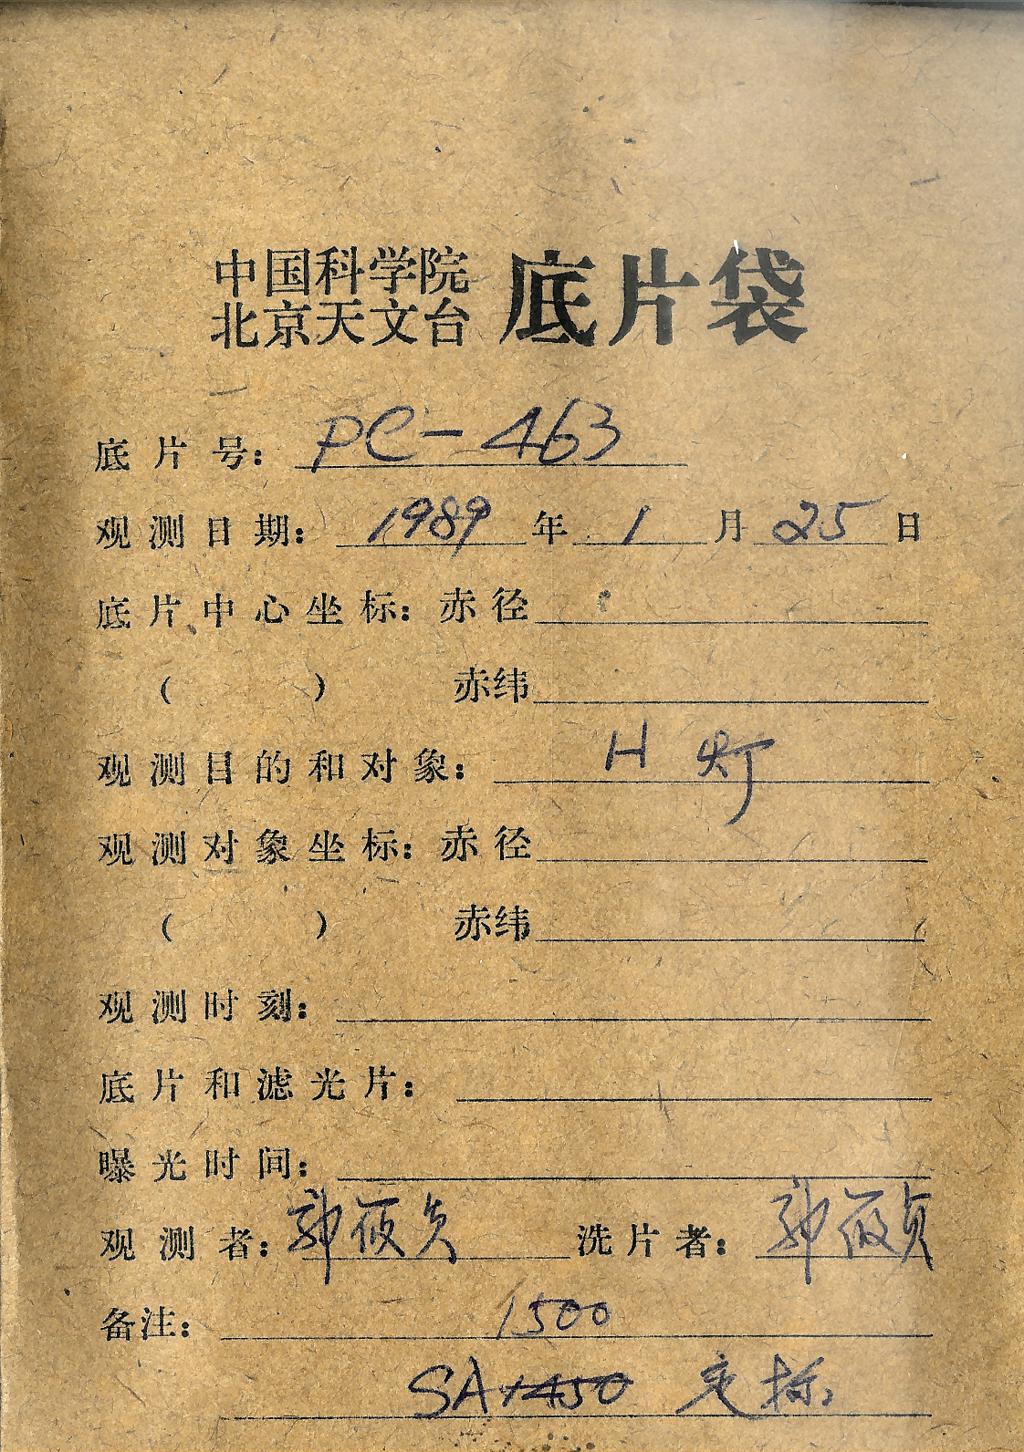 中国科学院
北京天文台 底片袋
底片号: PC-463
观测日期: 1989年1月25日
底片中心坐标: 赤径
( ) 赤纬
观测目的和对象: H 灯
观测对象坐标: 赤径
( ) 赤纬
观测时刻:
底片和滤光片:
曝光时间:
观测者: 郭筱贞 洗片者: 郭筱贞
备注: 1500
SA 1450 定标